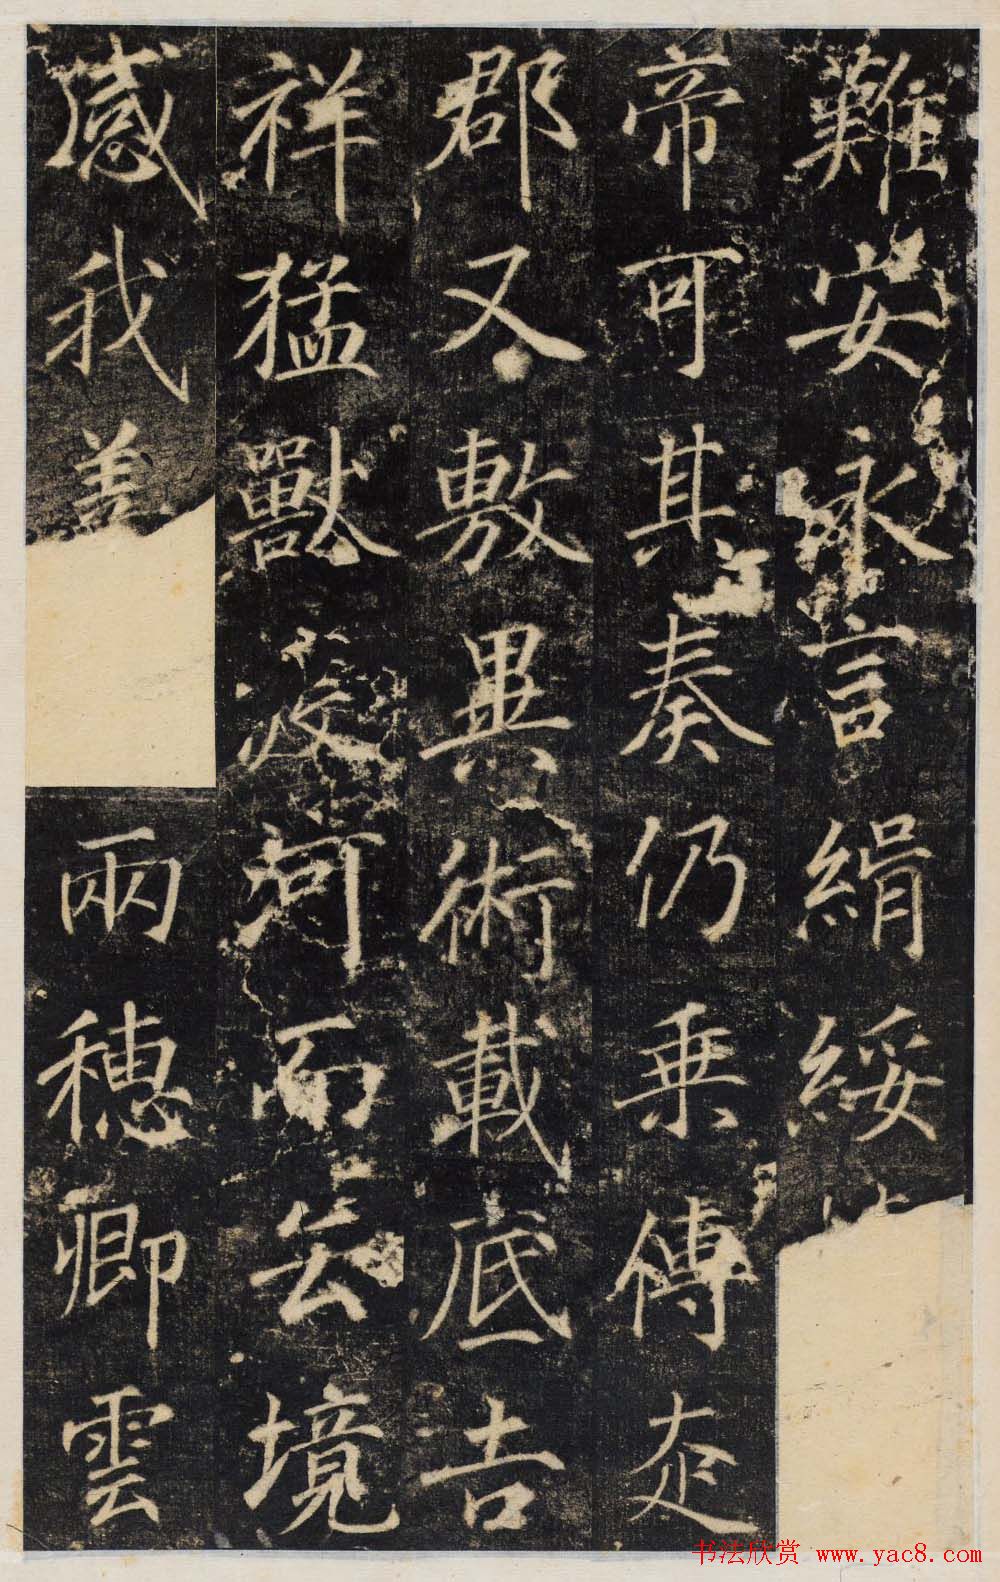 難安永言絹綏
帝可其奏仍乗傳赱
郡又敷異術載底吉
祥猛獸渡河而去境
感我善兩穗卿雲
书法欣赏 www.yac8.com